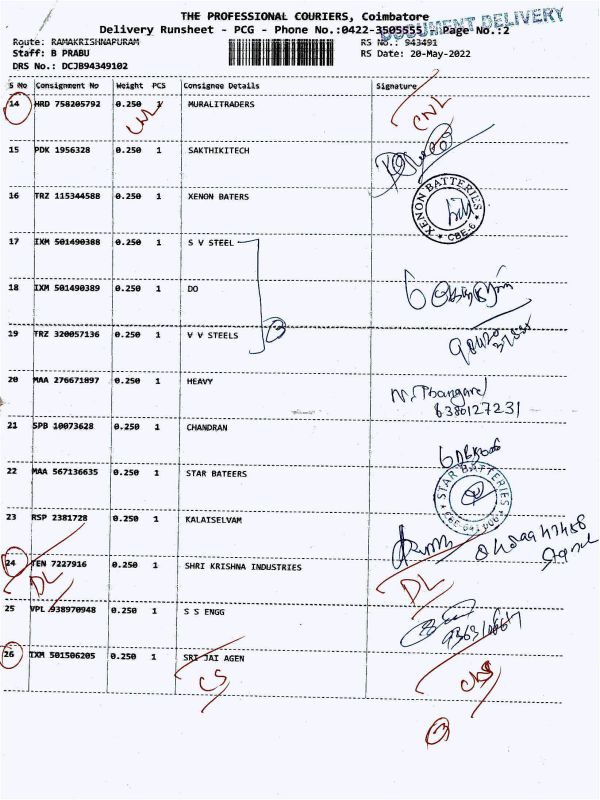 THE PROFESSIONAL COURIERS, Coimbatore
DOCUMENT DELIVERY
Delivery Runsheet - PCG - Phone No.:0422-3505555 Page No.:2
Route: RAMAKRISHNAPURAM RS No.: 943491
Staff: B PRABU RS Date: 20-May-2022
DRS No.: DCJB94349102
S No Consignment No Weight PCS Consignee Details Signature
14 HRD 758205792 0.250 1 MURALITRADERS CNL
15 PDK 1956328 0.250 1 SAKTHIKITECH
16 TRZ 115344588 0.250 1 XENON BATERS
XENON BATTERIES
CBE-6
17 IXM 501490388 0.250 1 S V STEEL
18 IXM 501490389 0.250 1 DO
19 TRZ 320057136 0.250 1 V V STEELS
3
20 MAA 276671897 0.250 1 HEAVY
N. Thangavel
6380127231
21 SPB 10073628 0.250 1 CHANDRAN
22 MAA 567136635 0.250 1 STAR BATEERS
STAR BATTERIES
23 RSP 2381728 0.250 1 KALAISELVAM
24 TEN 7227916 0.250 1 SHRI KRISHNA INDUSTRIES
DL DL
25 VPL 938970948 0.250 1 S S ENGG
26 IXM 501506205 0.250 1 SRI JAI AGEN
CS
3